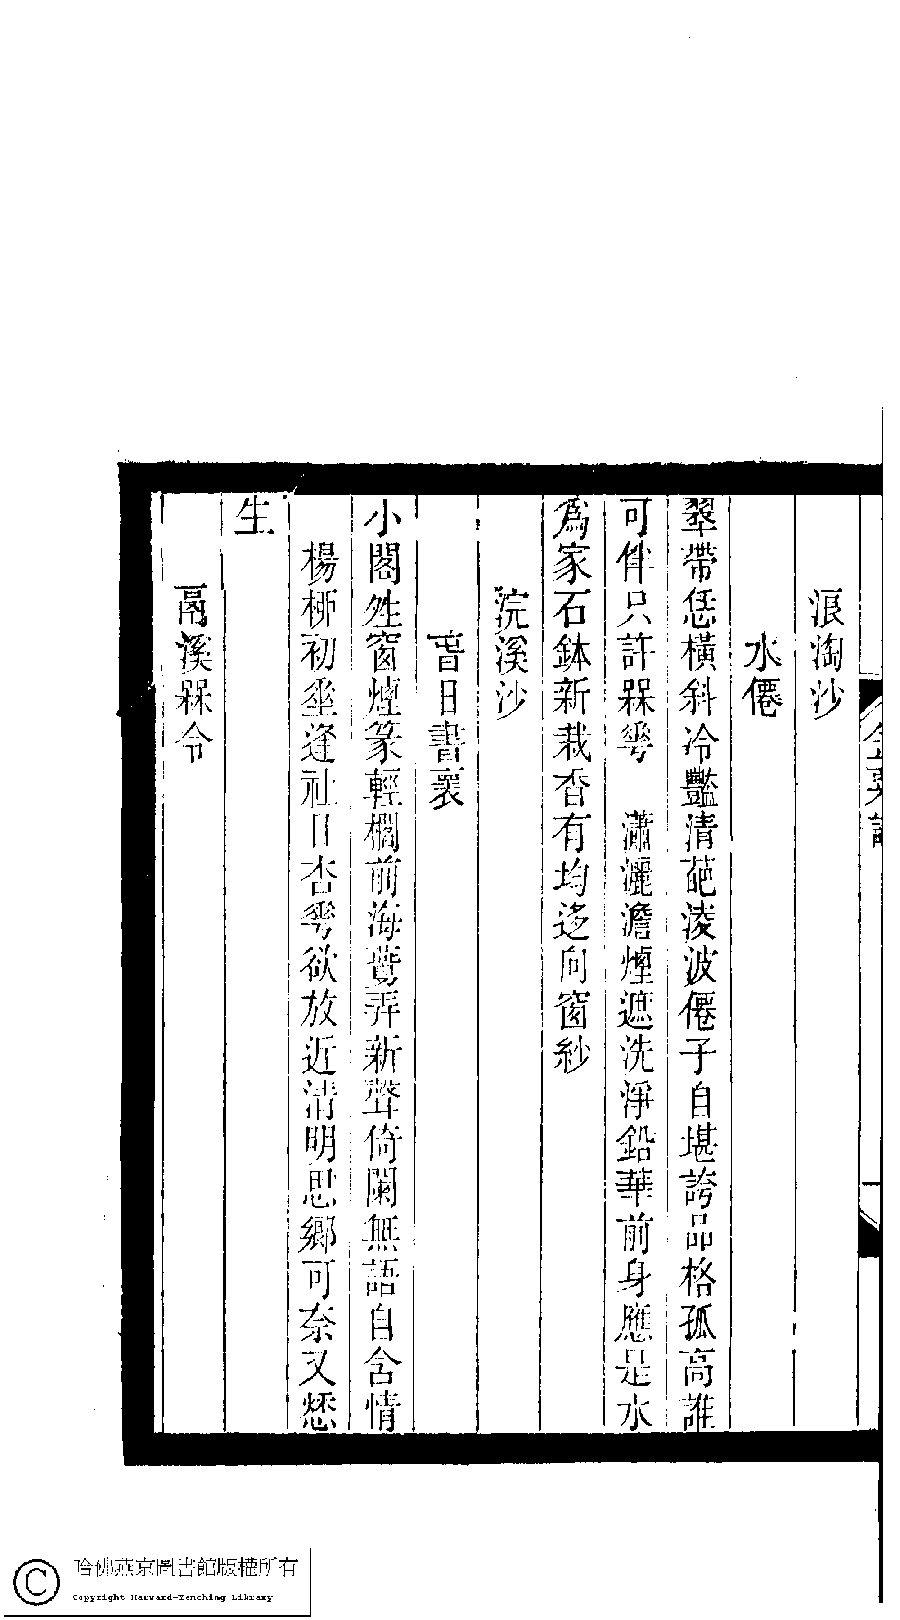 浪淘沙
水僊
翠帶恁橫斜冷豔清葩淩波僊子自堪誇品格孤高誰
可伴只許槑㝬　瀟灑澹煙遮洗淨鉛華前身應是水
為家石鉢新栽香有均迻向窗紗
浣溪沙
旾日書裏
小閣姓窗煙篆輕櫚前海鷰弄新聲倚闌無語自含情
楊桺初垂逢社日杏㝬欲放近清明思鄉可奈又愁
生
鬲溪槑令
哈佛燕京圖書館版權所有
Copyright Harvard-Yenching Library